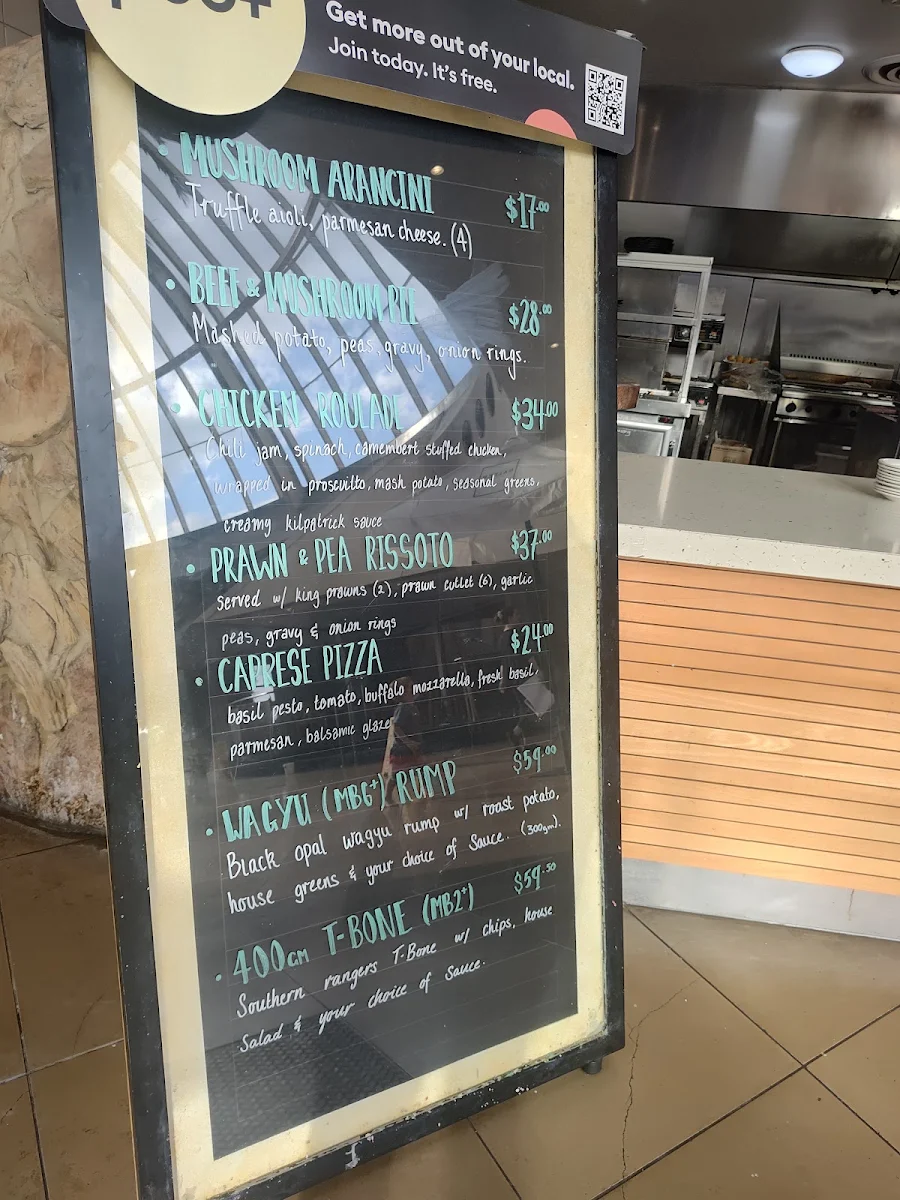 Get more out of your local.
Join today. It's free.
• MUSHROOM ARANCINI $17.00
Truffle aioli, parmesan cheese. (4)
• BEEF & MUSHROOM PIE $28.00
Mashed potato, peas, gravy, onion rings.
• CHICKEN ROULADE $34.00
Chili jam, spinach, camembert stuffed chicken,
wrapped in proscuitto, mash potato, seasonal greens,
creamy kilpatrick sauce
• PRAWN & PEA RISSOTO $37.00
served w/ king prawns (2), prawn cutlet (6), garlic
peas, gravy & onion rings
• CAPRESE PIZZA $24.00
basil pesto, tomato, buffalo mozzarella, fresh basil,
parmesan, balsamic glaze
• WAGYU (MB6+) RUMP $59.00
Black opal wagyu rump w/ roast potato,
house greens & your choice of Sauce. (300gm).
• 400GM T-BONE (MB2+) $59.50
Southern rangers T-Bone w/ chips, house
Salad & your choice of Sauce.